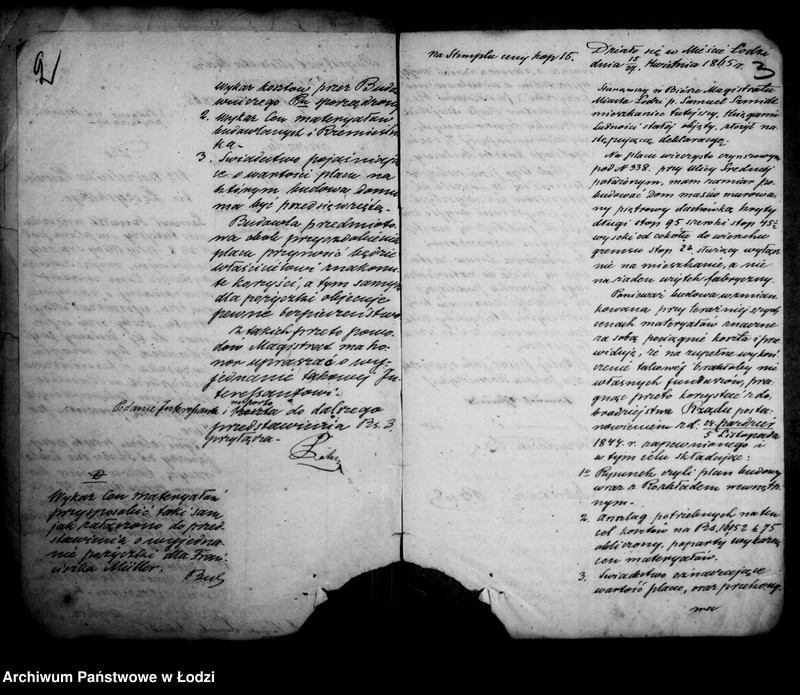 2
wykaz kosztów przez Budo-
wniczego sporządzony
2. Wykaz Cen materyałów
budowlanych i Rzemieśni-
ka.
3. Świadectwo pojaśniają-
ce o wartości placu na
którym budowa domu
ma być przedsięwzięta.
Budowla przedmioto-
wa obok przyozdobienia
placu przynosić będzie
właścicielowi znakomi-
te korzyści, a tym samym
dla pożyczki obiecuje
pewne bezpieczeństwo
Z takich przeto powo-
dów Magistrat ma ho-
nor upraszać o wy-
jednanie takowej In-
teressantowi.
Podanie Interesanta i
koszta do dalszego
przedstawienia Rs. 3.
przyłącza.
Wykaz Cen materyałów
przysposobić taki sam
jak załączono do przed-
stawienia o wyjedna-
nie pożyczki dla Fran-
ciszka Müller.
na Stemplu ceny kop 15.
3
Działo się w Mieście Łodzi
dnia 15/27 Kwietnia 1845 r.
Stanąwszy w Biórze Magistratu
Miasta Łodzi p. Samuel
mieszkaniec tutejszy, księgami
ludności stałej objęty, złożył na-
stępującą deklaracyą.
Na placu wieczysto czynszowym
pod N 338. przy ulicy Średniej
położonym, mam zamiar po-
budować dom massiv murowa-
ny piętrowy dachówką kryty
długi stop 95 szeroki stop 45½
wysoki od cokółu do wierzchu
gzemsu stop 22. służący wyłącz-
nie na mieszkanie, a nie
na żaden użytek fabryczny.
Ponieważ budowa wzmian-
kowana przy teraźniejszych
cenach materyałów znaczne
za sobą pociągnie koszta i prze-
widuję, że na zupełne wykoń-
czenie takowej brakłoby mi
własnych funduszów, pra-
gnąc przeto korzystać z do-
brodziejstwa Rządu posta-
nowieniem z d. 24 Paździer/5 Listopada
1844. r. zapewnionego i
w tym celu składając:
1o Rysunek czyli plan budowy
wraz z Rozkładem wewnętrz-
nym.
2. Anszlag potrzebnych na ten
cel kosztów na Rs. k 75
obliczony, poparty wykazem
cen materyałów.
3. Świadectwo oznaczające
wartość placu, oraz
Archiwum Państwowe w Łodzi